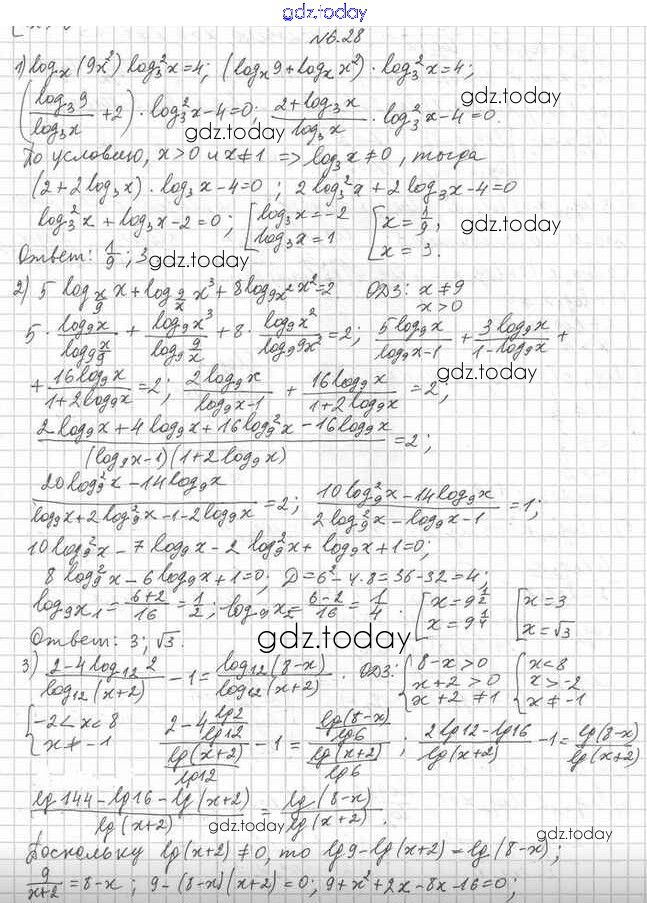 gdz.today
№6.28
1) log_x(9x²)log₃²x=4; (log_x 9+log_x x²)·log₃²x=4;
(log₃9/log₃x +2)·log₃²x-4=0; (2+log₃x)/log₃x ·log₃²x-4=0.
gdz.today
gdz.today
По условию, x>0 и x≠1 => log₃x≠0, тогда
(2+2log₃x)·log₃x-4=0; 2log₃²x+2log₃x-4=0
log₃²x+log₃x-2=0; [log₃x=-2 log₃x=1 [x=1/9, x=3.
gdz.today
Ответ: 1/9; 3
gdz.today
2) 5log_{x/9}x+log_{9/x}x³+8log_{9x²}x²=2 ОДЗ: x≠9 x>0
5·log₉x/log₉(x/9) + log₉x³/log₉(9/x) + 8·log₉x²/log₉9x²=2; 5log₉x/(log₉x-1) + 3log₉x/(1-log₉x) +
+16log₉x/(1+2log₉x)=2; 2log₉x/(log₉x-1) + 16log₉x/(1+2log₉x) =2;
gdz.today
(2log₉x+4log₉x+16log₉²x-16log₉x)/((log₉x-1)(1+2log₉x))=2;
(20log₉²x-14log₉x)/(log₉x+2log₉²x-1-2log₉x)=2; (10log₉²x-14log₉x)/(2log₉²x-log₉x-1)=1;
10log₉²x-7log₉x-2log₉²x+log₉x+1=0;
8log₉²x-6log₉x+1=0; D=6²-4·8=36-32=4;
log₉x₁=(6+2)/16=1/2; log₉x₂=(6-2)/16=1/4. [x=9^{1/2} x=9^{1/4} [x=3 x=√3
Ответ: 3; √3.
gdz.today
3) (2-4log₁₂2)/log₁₂(x+2) -1=log₁₂(8-x)/log₁₂(x+2). ОДЗ: {8-x>0 x+2>0 x+2≠1 {x<8 x>-2 x≠-1
{-2<x<8 x≠-1 (2-4 lg2/lg12)/(lg(x+2)/lg12) -1= (lg(8-x)/lg6)/(lg(x+2)/lg6); (2lg12-lg16)/lg(x+2) -1=lg(8-x)/lg(x+2)
(lg144-lg16-lg(x+2))/lg(x+2)=lg(8-x)/lg(x+2).
gdz.today
gdz.today
Поскольку lg(x+2)≠0, то lg9-lg(x+2)=lg(8-x);
9/(x+2)=8-x; 9-(8-x)(x+2)=0; 9+x²+2x-8x-16=0;